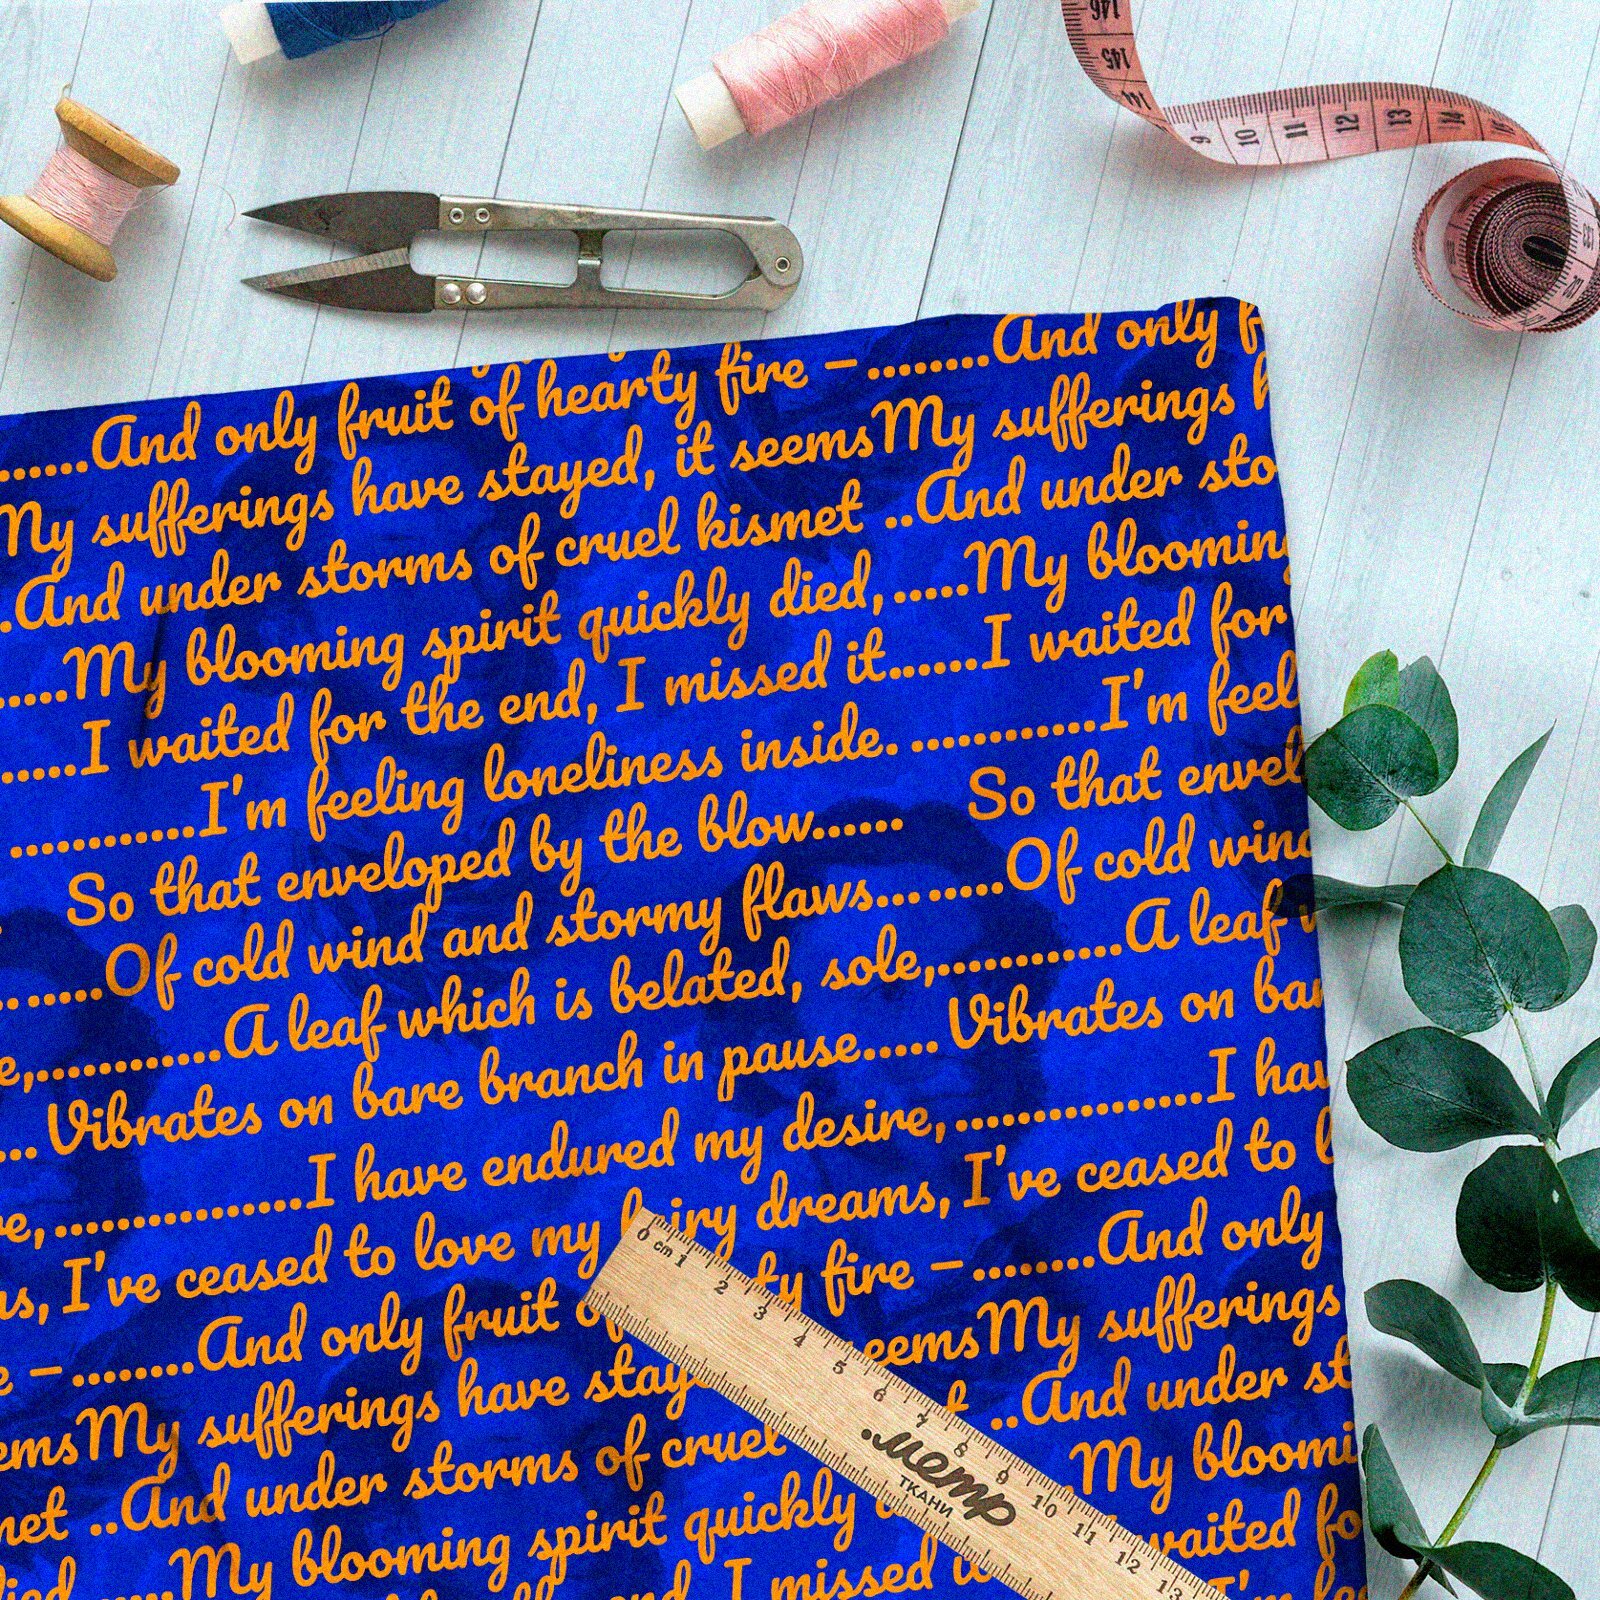 146
145
144
9 10 11 12 13 14 15
........And only fruit of hearty fire – ........And only f
My sufferings have stayed, it seemsMy sufferings h
..And under storms of cruel kismet ..And under sto
.....My blooming spirit quickly died,.....My blooming
......I waited for the end, I missed it......I waited for
............I'm feeling loneliness inside. ............I'm feel
So that enveloped by the blow...... So that envel
........Of cold wind and stormy flaws........Of cold wind
e,............A leaf which is belated, sole,............A leaf w
.....Vibrates on bare branch in pause.....Vibrates on bar
re,................I have endured my desire,................I hav
ms, I've ceased to love my fairy dreams, I've ceased to l
e – ........And only fruit o ty fire – ........And only
emsMy sufferings have staye eemsMy sufferings
met ..And under storms of cruel t ..And under st
died, .....My blooming spirit quickly .....My bloomi
end, I missed it waited fo
I'm fee
0 cm 1 2 3 4 5 6 7 8 9 10 11 12 13
.метр
ткани